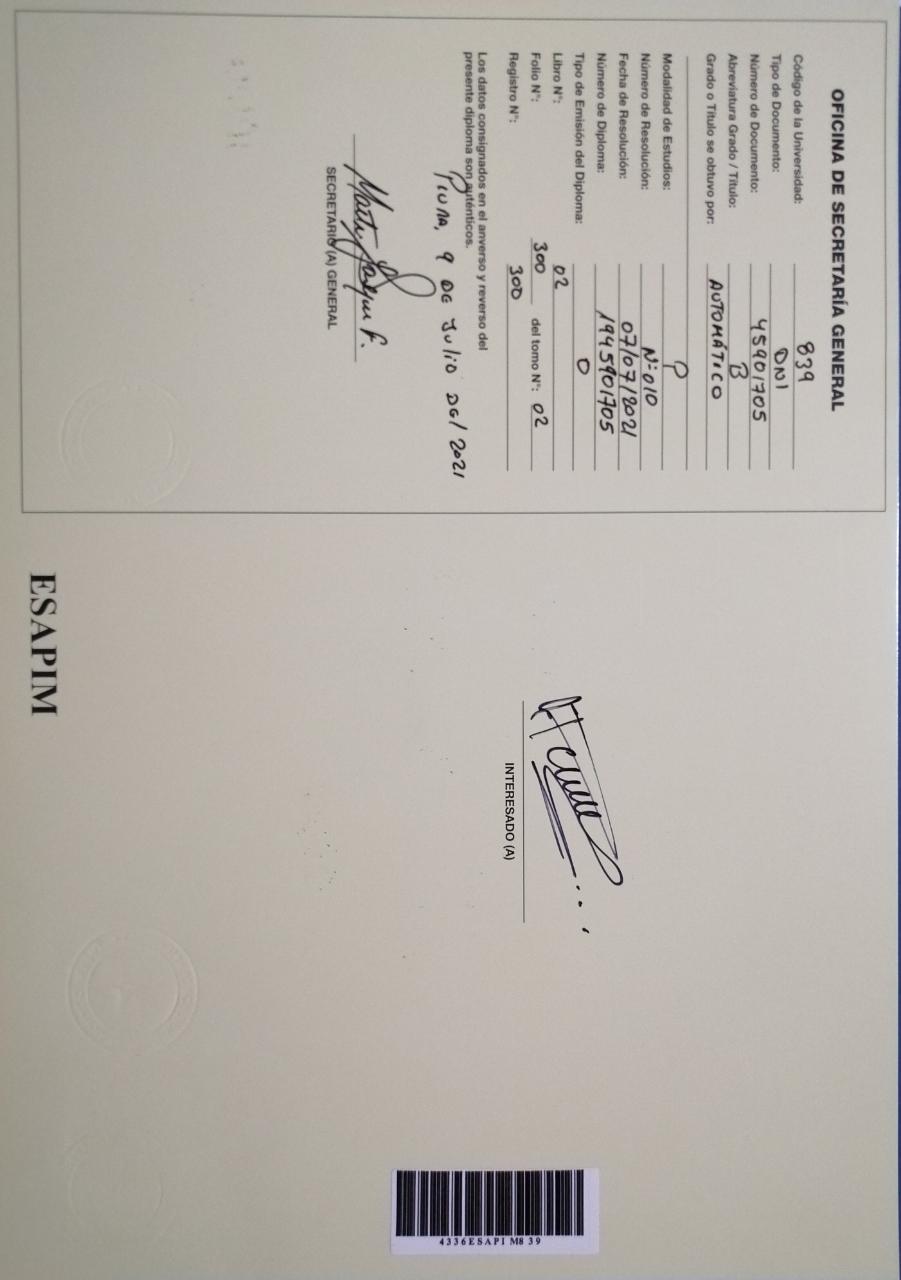 OFICINA DE SECRETARÍA GENERAL
Código de la Universidad: 839
Tipo de Documento: DNI
Número de Documento: 45901705
Abreviatura Grado / Título: B
Grado o Título se obtuvo por: AUTOMÁTICO
Modalidad de Estudios: P
Número de Resolución: N°010
Fecha de Resolución: 07/07/2021
Número de Diploma: 1945901705
Tipo de Emisión del Diploma: O
Libro N°: 02
Folio N°: 300 del tomo N°: 02
Registro N°: 300
Los datos consignados en el anverso y reverso del
presente diploma son auténticos.
PIURA, 9 DE Julio DEl 2021
SECRETARIO (A) GENERAL
INTERESADO (A)
4336ESAPIM839
ESAPIM